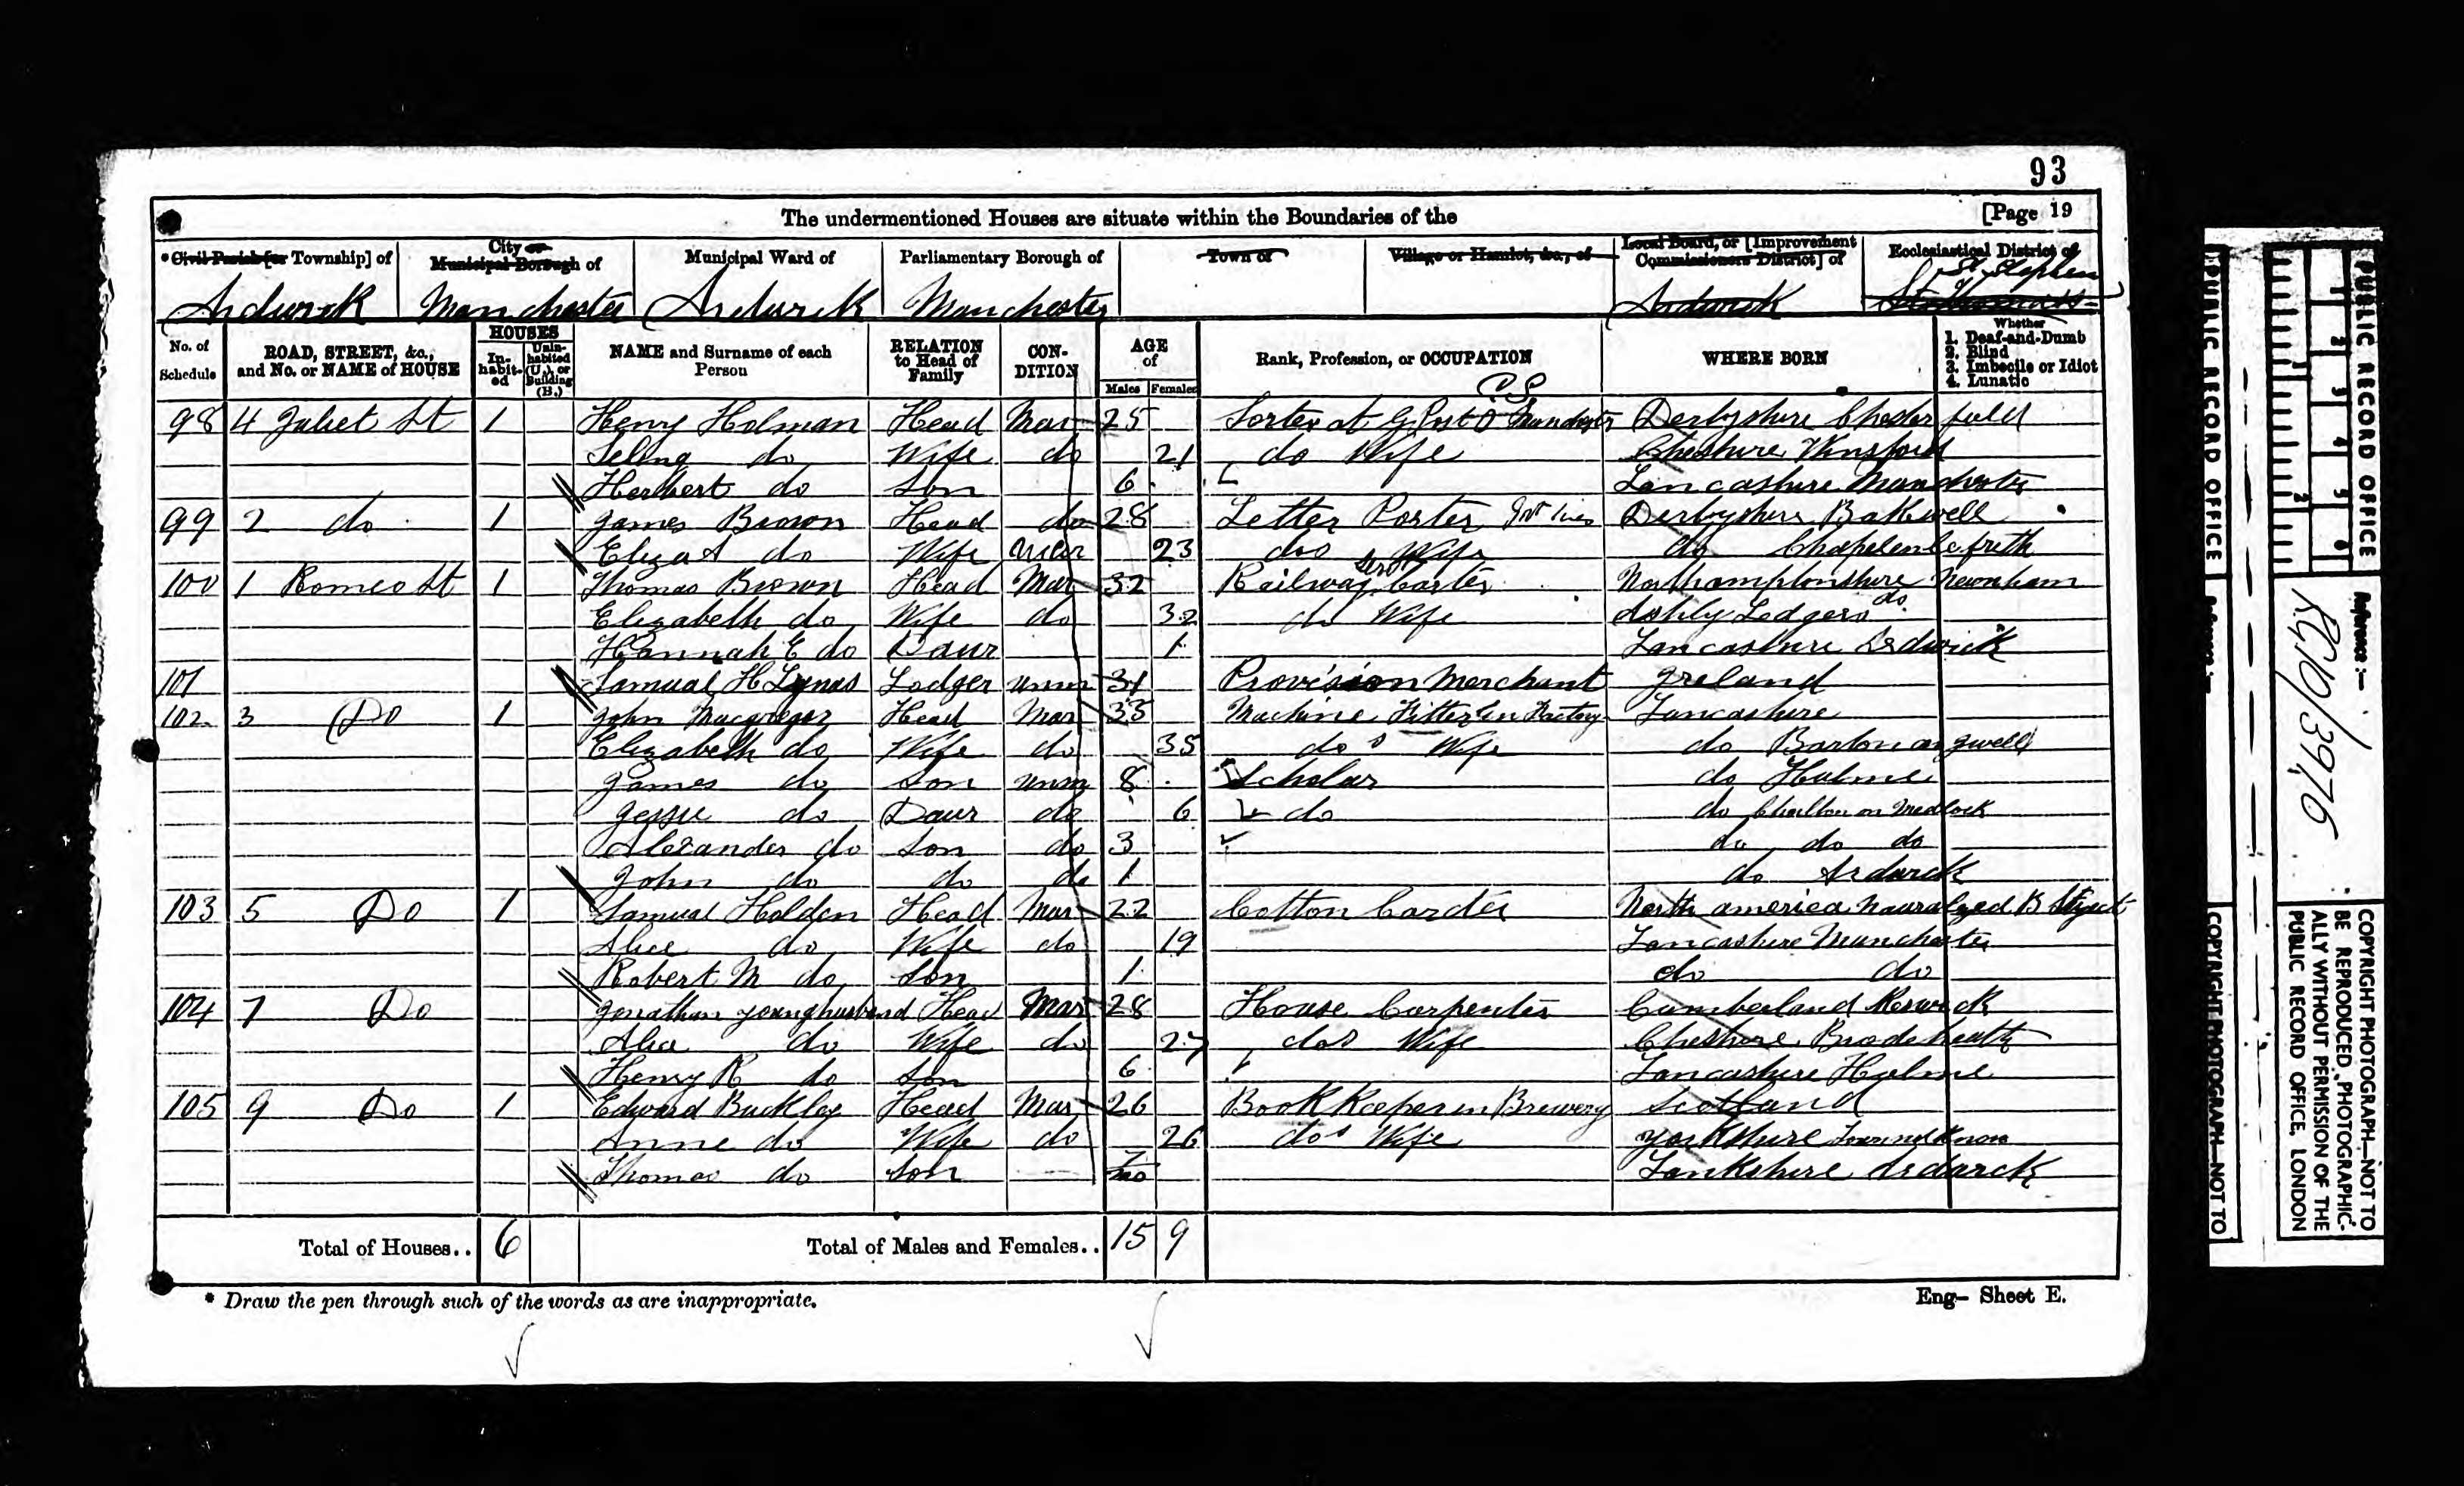 93
The undermentioned Houses are situate within the Boundaries of the [Page 19
*Civil Parish [or Township] of City or Municipal Borough of Municipal Ward of Parliamentary Borough of Town of Village or Hamlet, &c., of Local Board, or [Improvement Commissioners District] of Ecclesiastical District of
Ardwick Manchester Ardwick Manchester Ardwick St Stephen St Thomas's
No. of Schedule ROAD, STREET, &c., and No. or NAME of HOUSE HOUSES In-habit-ed Unin-habited (U.), or Building (B.) NAME and Surname of each Person RELATION to Head of Family CON-DITION AGE of Males Females Rank, Profession, or OCCUPATION WHERE BORN Whether 1. Deaf-and-Dumb 2. Blind 3. Imbecile or Idiot 4. Lunatic
98 4 Juliet St 1 Henry Holman Head Mar 25 Sorter at G Post O Manchester C.S. Derbyshire Chesterfield
Selina do Wife do 21 do Wife Cheshire Winsford
Herbert do Son 6 Lancashire Manchester
99 2 do 1 James Brown Head do 28 Letter Porter Derbyshire Bakewell
Eliza A do Wife Mar 23 dos Wife do Chapelenlefrith
100 1 Romeo St 1 Thomas Brown Head Mar 32 Railway Carter Northamptonshire Newnham
Elizabeth do Wife do 32 do Wife Ashby Ledgers do
Hannah E do Daur 1 Lancashire Ardwick
101 Samual H Lynas Lodger unm 31 Provision Merchant Ireland
102 3 Do 1 John Macgregor Head Mar 35 Machine Fitter in Factory Lancashire
Elizabeth do Wife do 35 dos Wife do Barton
James do Son unm 8 Scholar do Hulme
Jessie do Daur do 6 do do Chorlton on Medlock
Alexander do Son do 3 do do do
John do do do 1 do Ardwick
103 5 Do 1 Samual Holden Head Mar 22 Cotton Carder North america B Subject
Alice do Wife do 19 Lancashire Manchester
Robert M do Son 1 do do
104 7 Do Jonathan Younghusband Head Mar 28 House Carpenter Cumberland Keswick
Alice do Wife do 27 dos Wife Cheshire Broadheath
Henry R do Son 6 Lancashire Hulme
105 9 Do 1 Edward Buckley Head Mar 26 Book Keeper in Brewery Scotland
Anne do Wife do 26 dos Wife Yorkshire
Thomas do Son 7 mo Lankshire Ardwick
Total of Houses.. 6 Total of Males and Females.. 15 9
* Draw the pen through such of the words as are inappropriate. Eng— Sheet E.
PUBLIC RECORD OFFICE
Reference :—
RG10/3976
COPYRIGHT PHOTOGRAPH—NOT TO
BE REPRODUCED PHOTOGRAPHIC-
ALLY WITHOUT PERMISSION OF THE
PUBLIC RECORD OFFICE, LONDON
PUBLIC RECORD OFFICE
Reference :—
COPYRIGHT PHOTOGRAPH—NOT TO